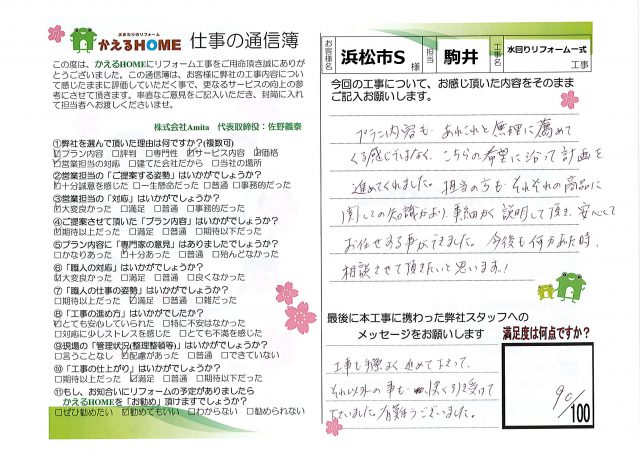 水まわりのリフォーム
かえるHOME 仕事の通信簿
この度は、かえるHOMEにリフォーム工事をご用命頂き誠にありがとうございました。この通信簿は、お客様に弊社の工事内容について感じたままに評価していただく事で、更なるサービスの向上の参考にさせて頂きます。率直なご意見をご記入いただき、封筒に入れて担当者へお渡しくださいませ。
株式会社Amita 代表取締役：佐野義泰
①弊社を選んで頂いた理由は何ですか?(複数可)
☑プラン内容 □評判 □専門性 ☑サービス内容 ☑価格
☑営業担当の対応 □建てた会社だから □当社の場所
②営業担当の「ご提案する姿勢」はいかがでしょうか？
☑十分誠意を感じた □一生懸命だった □普通 □事務的だった
③営業担当の「対応」はいかがでしょうか？
☑大変良かった □満足 □普通 □事務的だった
④ご提案させて頂いた「プラン内容」はいかがでしょうか？
☑期待以上だった □満足 □普通 □期待以下だった
⑤プラン内容に「専門家の意見」はありましたでしょうか？
□かなりあった ☑十分あった □普通 □殆んどなかった
⑥「職人の対応」はいかがでしょうか？
☑大変良かった □満足 □普通 □良くなかった
⑦「職人の仕事の姿勢」はいかがでしょうか？
□期待以上だった ☑満足 □普通 □雑だった
⑧「工事の進め方」はいかがでしたか？
☑とても安心していられた □特に不安はなかった
□対応に少しストレスを感じた □とても不満を感じた
⑨現場の「管理状況(整理整頓等)」はいかがでしょうか？
□言うことなし ☑配慮があった □普通 □できていない
⑩「工事の仕上がり」はいかがでしょうか？
□期待以上だった ☑満足 □普通 □期待以下だった
⑪もし、お知合いにリフォームの予定がありましたら
かえるHOMEを「お勧め」頂けますでしょうか？
□ぜひ勧めたい ☑勧めてもいい □わからない □勧められない
お客様名 浜松市S 様 担当 駒井 工事名 水回りリフォーム一式 工事
今回の工事について、お感じ頂いた内容をそのまま
ご記入お願いします。
プラン内容も、あれこれと無理に薦めて
くる感じではなく、こちらの希望に沿って計画を
進めてくれました。担当の方も それぞれの商品に
関しての知識があり、事細かく説明して頂き、安心して
お任せする事ができました。今後も何かあた時、
相談させて頂きたいと思います！
最後に本工事に携わった弊社スタッフへの
メッセージをお願いします
工事も手際よく進めて下さって、
それ以外の事も 快く引き受けて
下さいました。有難うございました。
満足度は何点ですか？
90/100